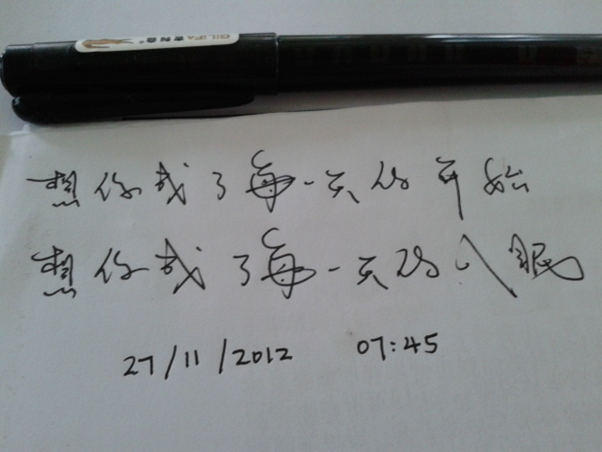 GILIFA 吉利发
想你成了每一天的开始
想你成了每一天的入眠
27/11/2012 07:45